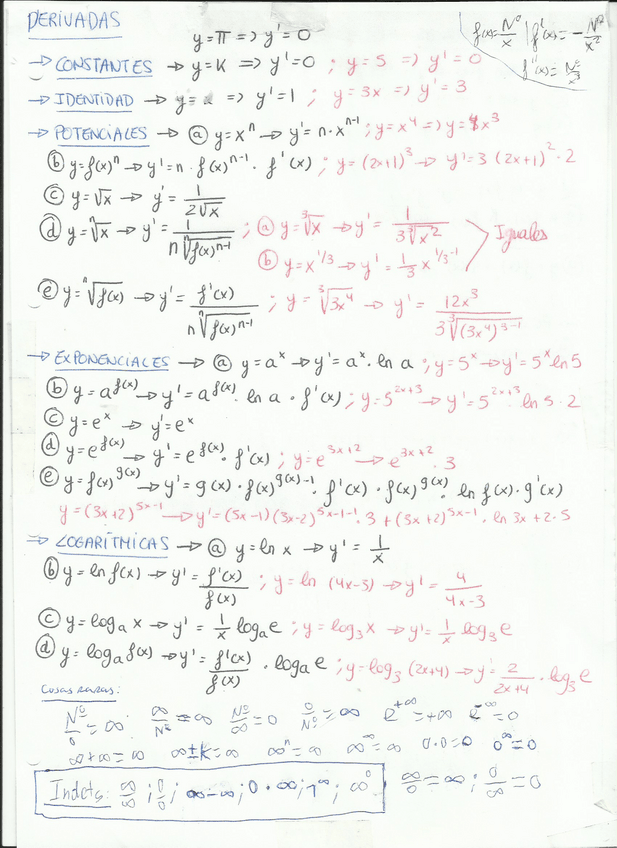 DERIVADAS
y=π => y'=0
f(x)=Nº/x | f'(x)=-Nº/x²
f''(x)=Nº/x³
→ CONSTANTES → y=K => y'=0 ; y=5 => y'=0
→ IDENTIDAD → y=x => y'=1 ; y=3x => y'=3
→ POTENCIALES → ⓐ y=xⁿ → y'=n·xⁿ⁻¹ ; y=x⁴ => y=4x³
ⓑ y=f(x)ⁿ → y'=n·f(x)ⁿ⁻¹·f'(x) ; y=(2x+1)³ → y'=3(2x+1)²·2
ⓒ y=√x → y'=1/(2√x)
ⓓ y=ⁿ√x → y'=1/(n ⁿ√f(x)ⁿ⁻¹) ; ⓐ y=³√x → y'=1/(3 ³√x²)
ⓑ y=x^(1/3) → y'=1/3 x^(1/3-1)
Iguales
ⓔ y=ⁿ√f(x) → y'=f'(x)/(n ⁿ√f(x)ⁿ⁻¹) ; y=³√3x⁴ → y'=12x³/(3 ³√(3x⁴)³⁻¹)
→ EXPONENCIALES → ⓐ y=aˣ → y'=aˣ·ln a ; y=5ˣ → y'=5ˣ ln5
ⓑ y=a^f(x) → y'=a^f(x)·ln a·f'(x) ; y=5^(2x+3) → y'=5^(2x+3)·ln 5·2
ⓒ y=eˣ → y'=eˣ
ⓓ y=e^f(x) → y'=e^f(x)·f'(x) ; y=e^(3x+2) → e^(3x+2)·3
ⓔ y=f(x)^g(x) → y'=g(x)·f(x)^(g(x)-1)·f'(x)·f(x)^g(x)·ln f(x)·g'(x)
y=(3x+2)^(5x-1) → y'=(5x-1)(3x-2)^(5x-1-1)·3+(3x+2)^(5x-1)·ln 3x+2·5
⇒ LOGARÍTMICAS → ⓐ y=ln x → y'=1/x
ⓑ y=ln f(x) → y'=f'(x)/f(x) ; y=ln (4x-3) → y'=4/(4x-3)
ⓒ y=logₐx → y'=1/x logₐe ; y=log₃x → y'=1/x log₃e
ⓓ y=logₐf(x) → y'=f'(x)/f(x)·logₐe ; y=log₃(2x+4) → y'=2/(2x+4)·log₃e
Cosas raras:
Nº/0=∞ ∞/Nº=∞ Nº/∞=0 0/Nº=∞ 2^+∞=+∞ 2^-∞=0
∞+∞=∞ ∞±k=∞ ∞ⁿ=∞ ∞^∞=∞ 0·0=0 0^∞=0
Indets: ∞/∞ ; 0/0 ; ∞-∞ ; 0·∞ ; 1^∞ ; ∞⁰
∞/0=∞ ; 0/∞=0